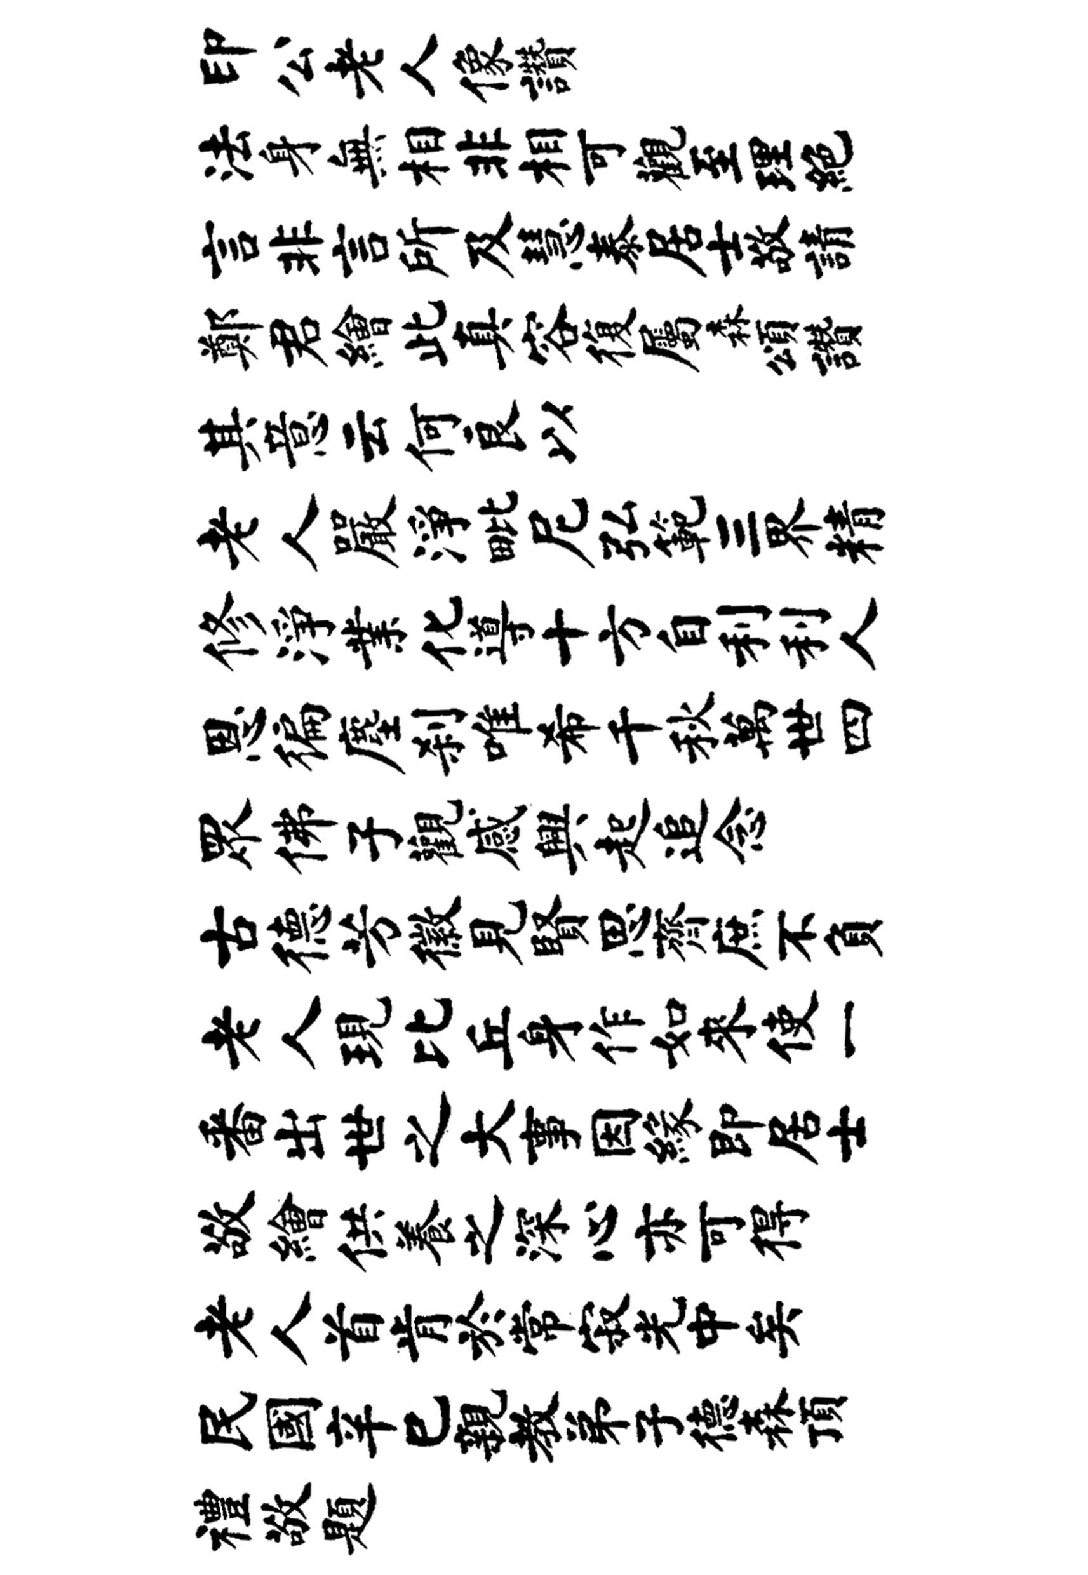 印公老人像讚
法身無相非相可觀至理絕
言非言所及慧泰居士敬請
鄭君繪此真容復屬森頌讚
其意云何良以
老人嚴淨毗尼弘範三界精
修淨業化導十方自利利人
恩徧塵剎唯希千秋萬世四
眾佛子觀感興起追念
古德芳徽見賢思齊庶不負
老人現比丘身作如來使一
番出世之大事因緣即居士
敬繪供養之深心亦可得
老人首肯於常寂光中矣
民國辛巳親教弟子德森頂
禮敬題